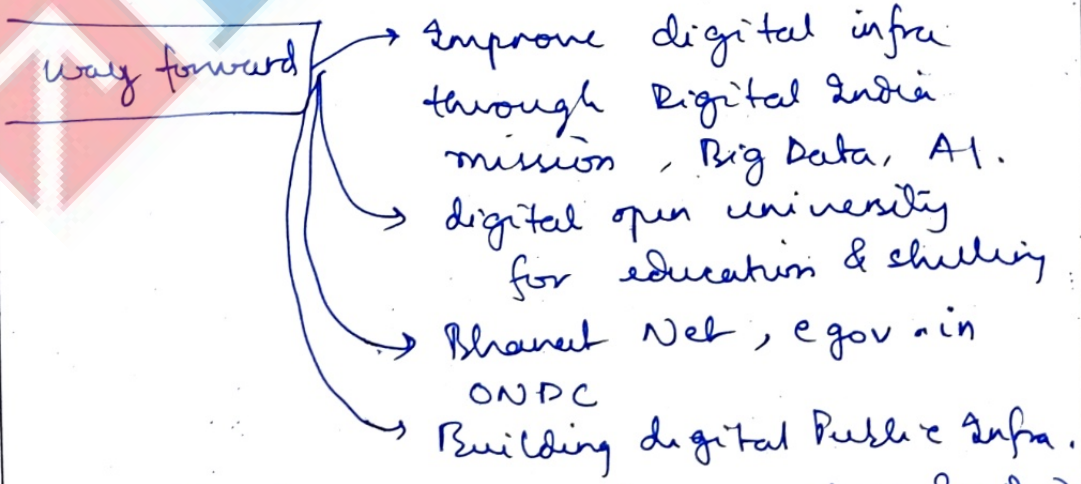 way forward
Improve digital infra
through Digital India
mission, Big Data, AI.
digital open university
for education & skilling
Bharat Net, egov.in
ONDC
Building digital Public Infra.